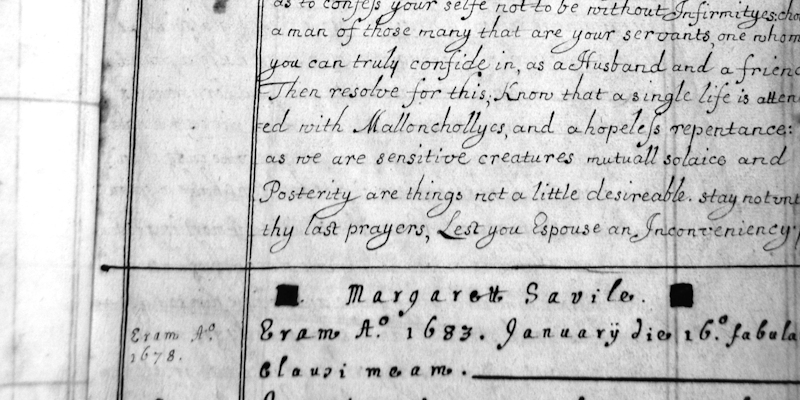 as to confess your selfe not to be without Infirmityes. cho
a man of those many that are your servants, one whom
you can truly confide in, as a Husband and a friend
Then resolve for this, Know that a single life is atten
ed with Mallonchollyes, and a hopeless repentance:
as we are sensitive creatures mutuall solaice and
Posterity are things not a little desireable. stay not unt
thy last prayers, Lest you Espouse an Inconveniency
Margarett Savile.
Eram Ao. 1678.
Eram A.o 1683. Januarÿ die 16.o fabula
Clausi meam.